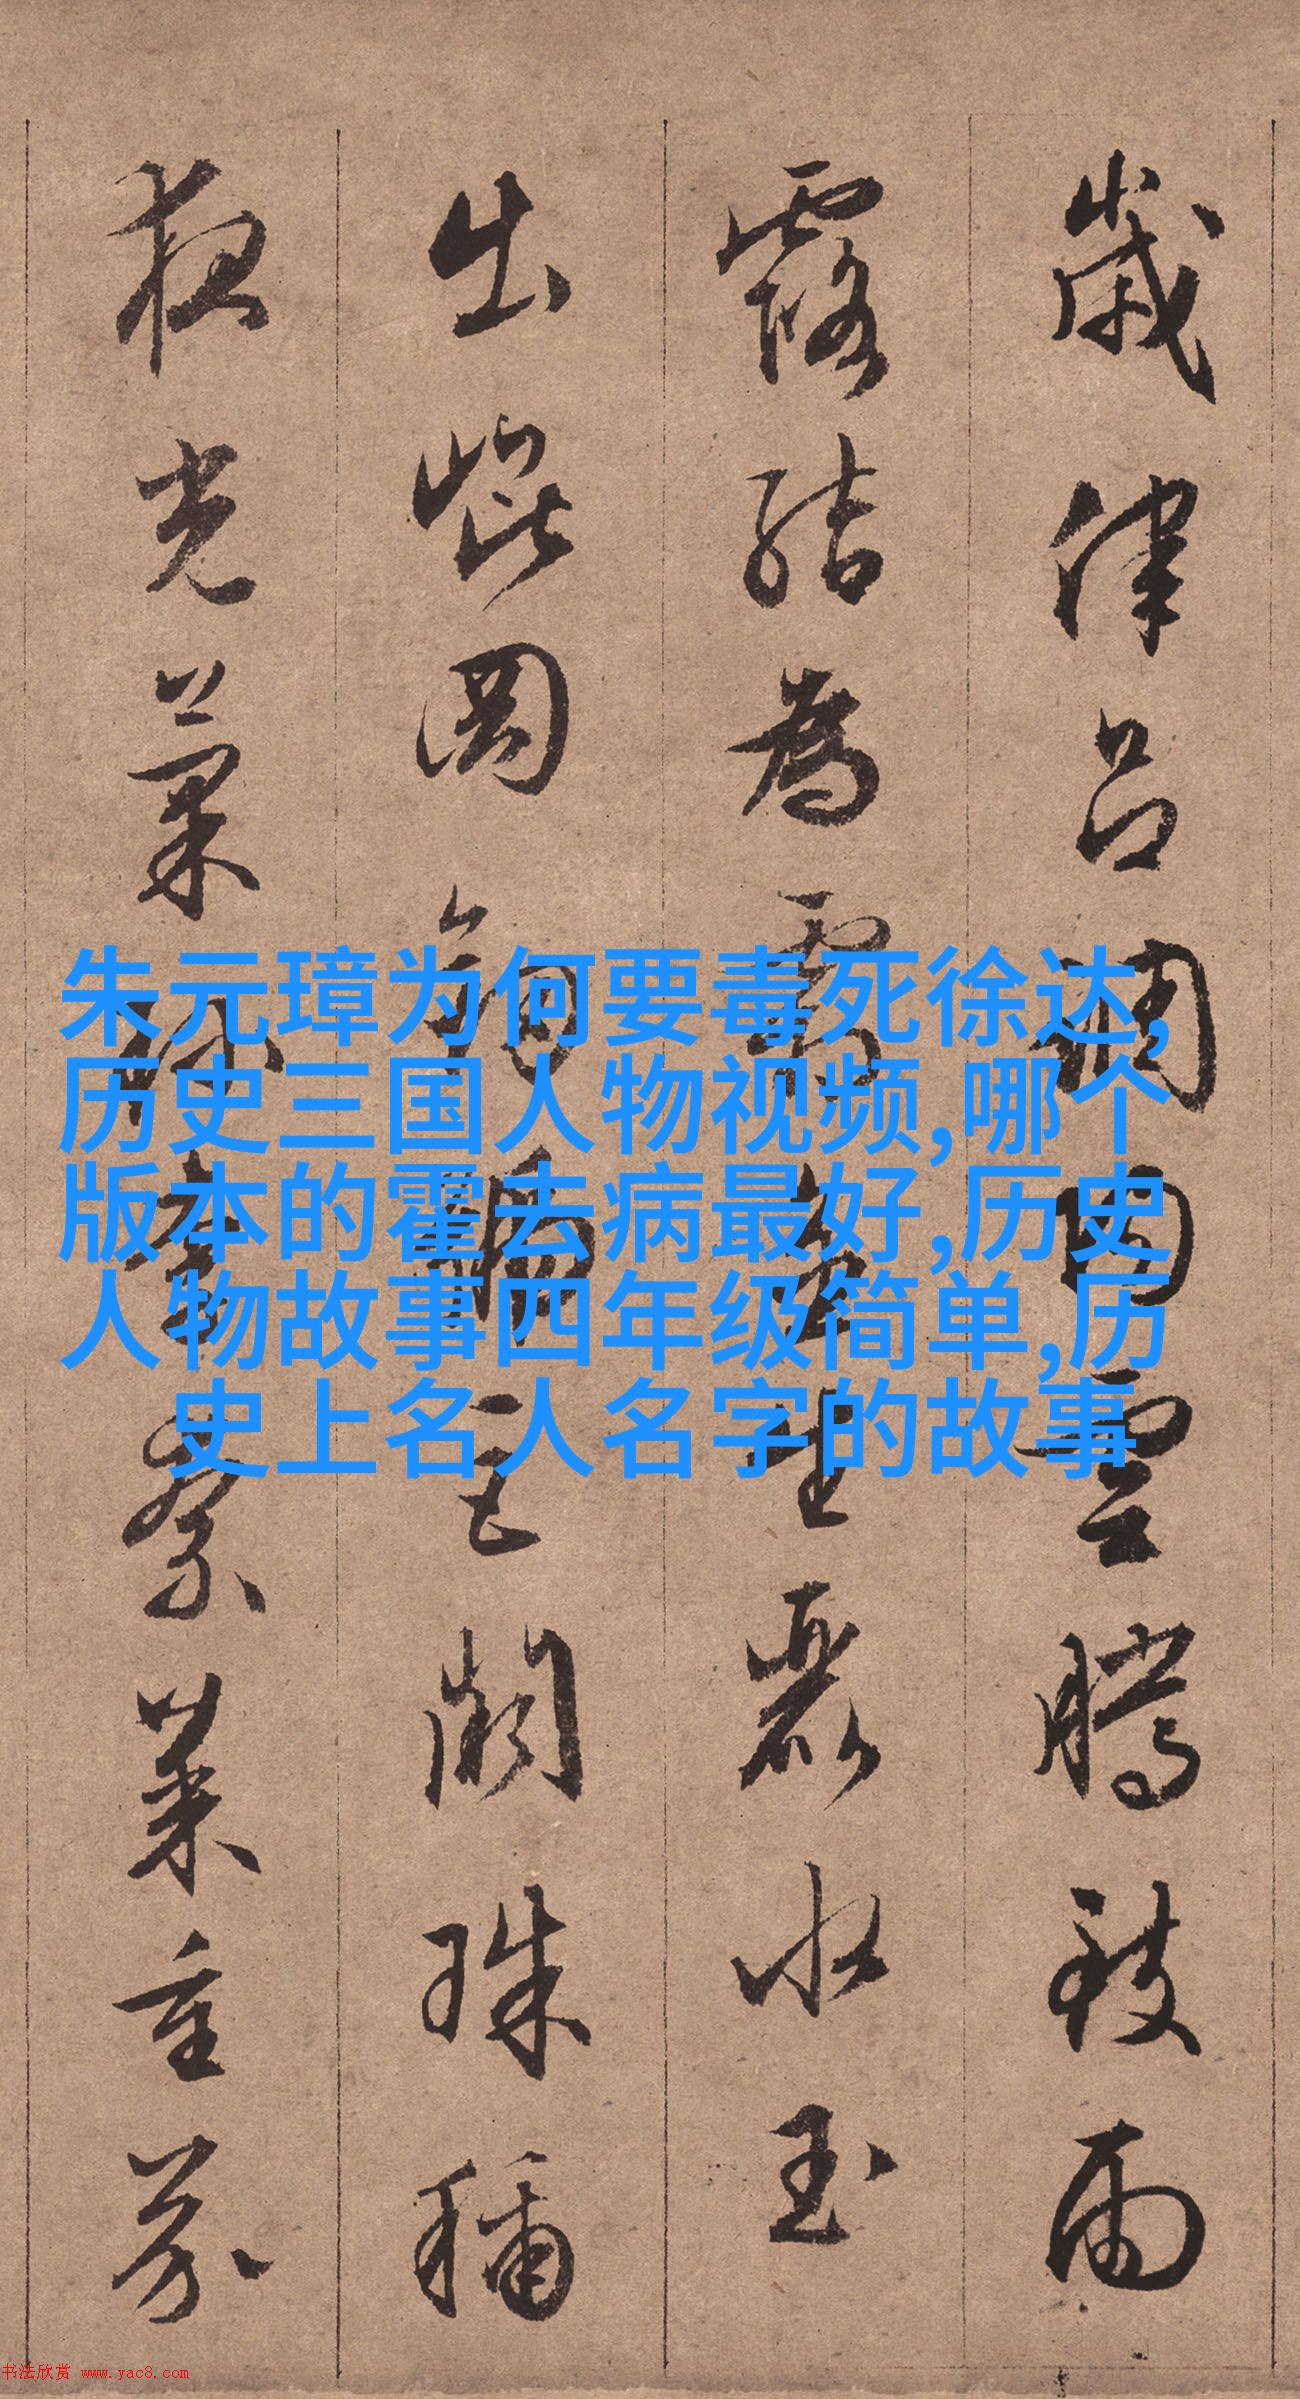 歲律呂調雲騰致雨
露結為霜生麗水玉
出崐岡劍號巨闕珠稱
夜光菓珍李柰菜重芥
朱元璋为何要毒死徐达,
历史三国人物视频,哪个
版本的霍去病最好,历史
人物故事四年级简单,历
史上名人名字的故事
书法欣赏 www.yac8.com